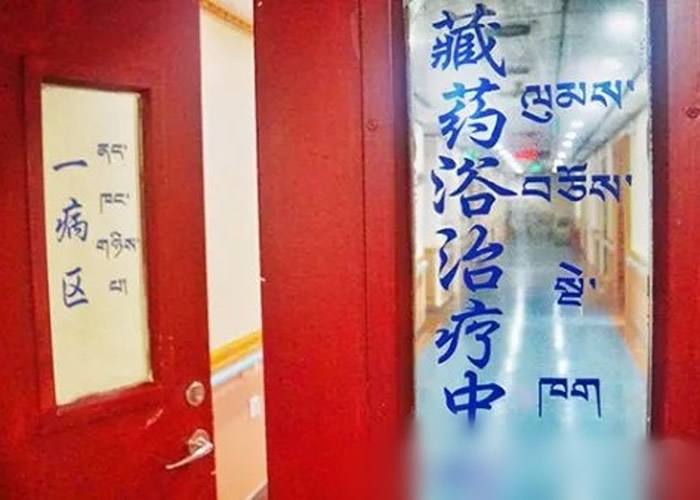 一病区
ནང་
ཁང་
གཉིས་
པ
藏药浴治疗中
ལུམས་
བཅོས་
སྡེ་
ཁག